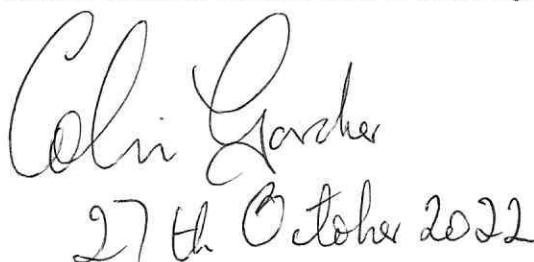 Colin Gardner
27th October 2022